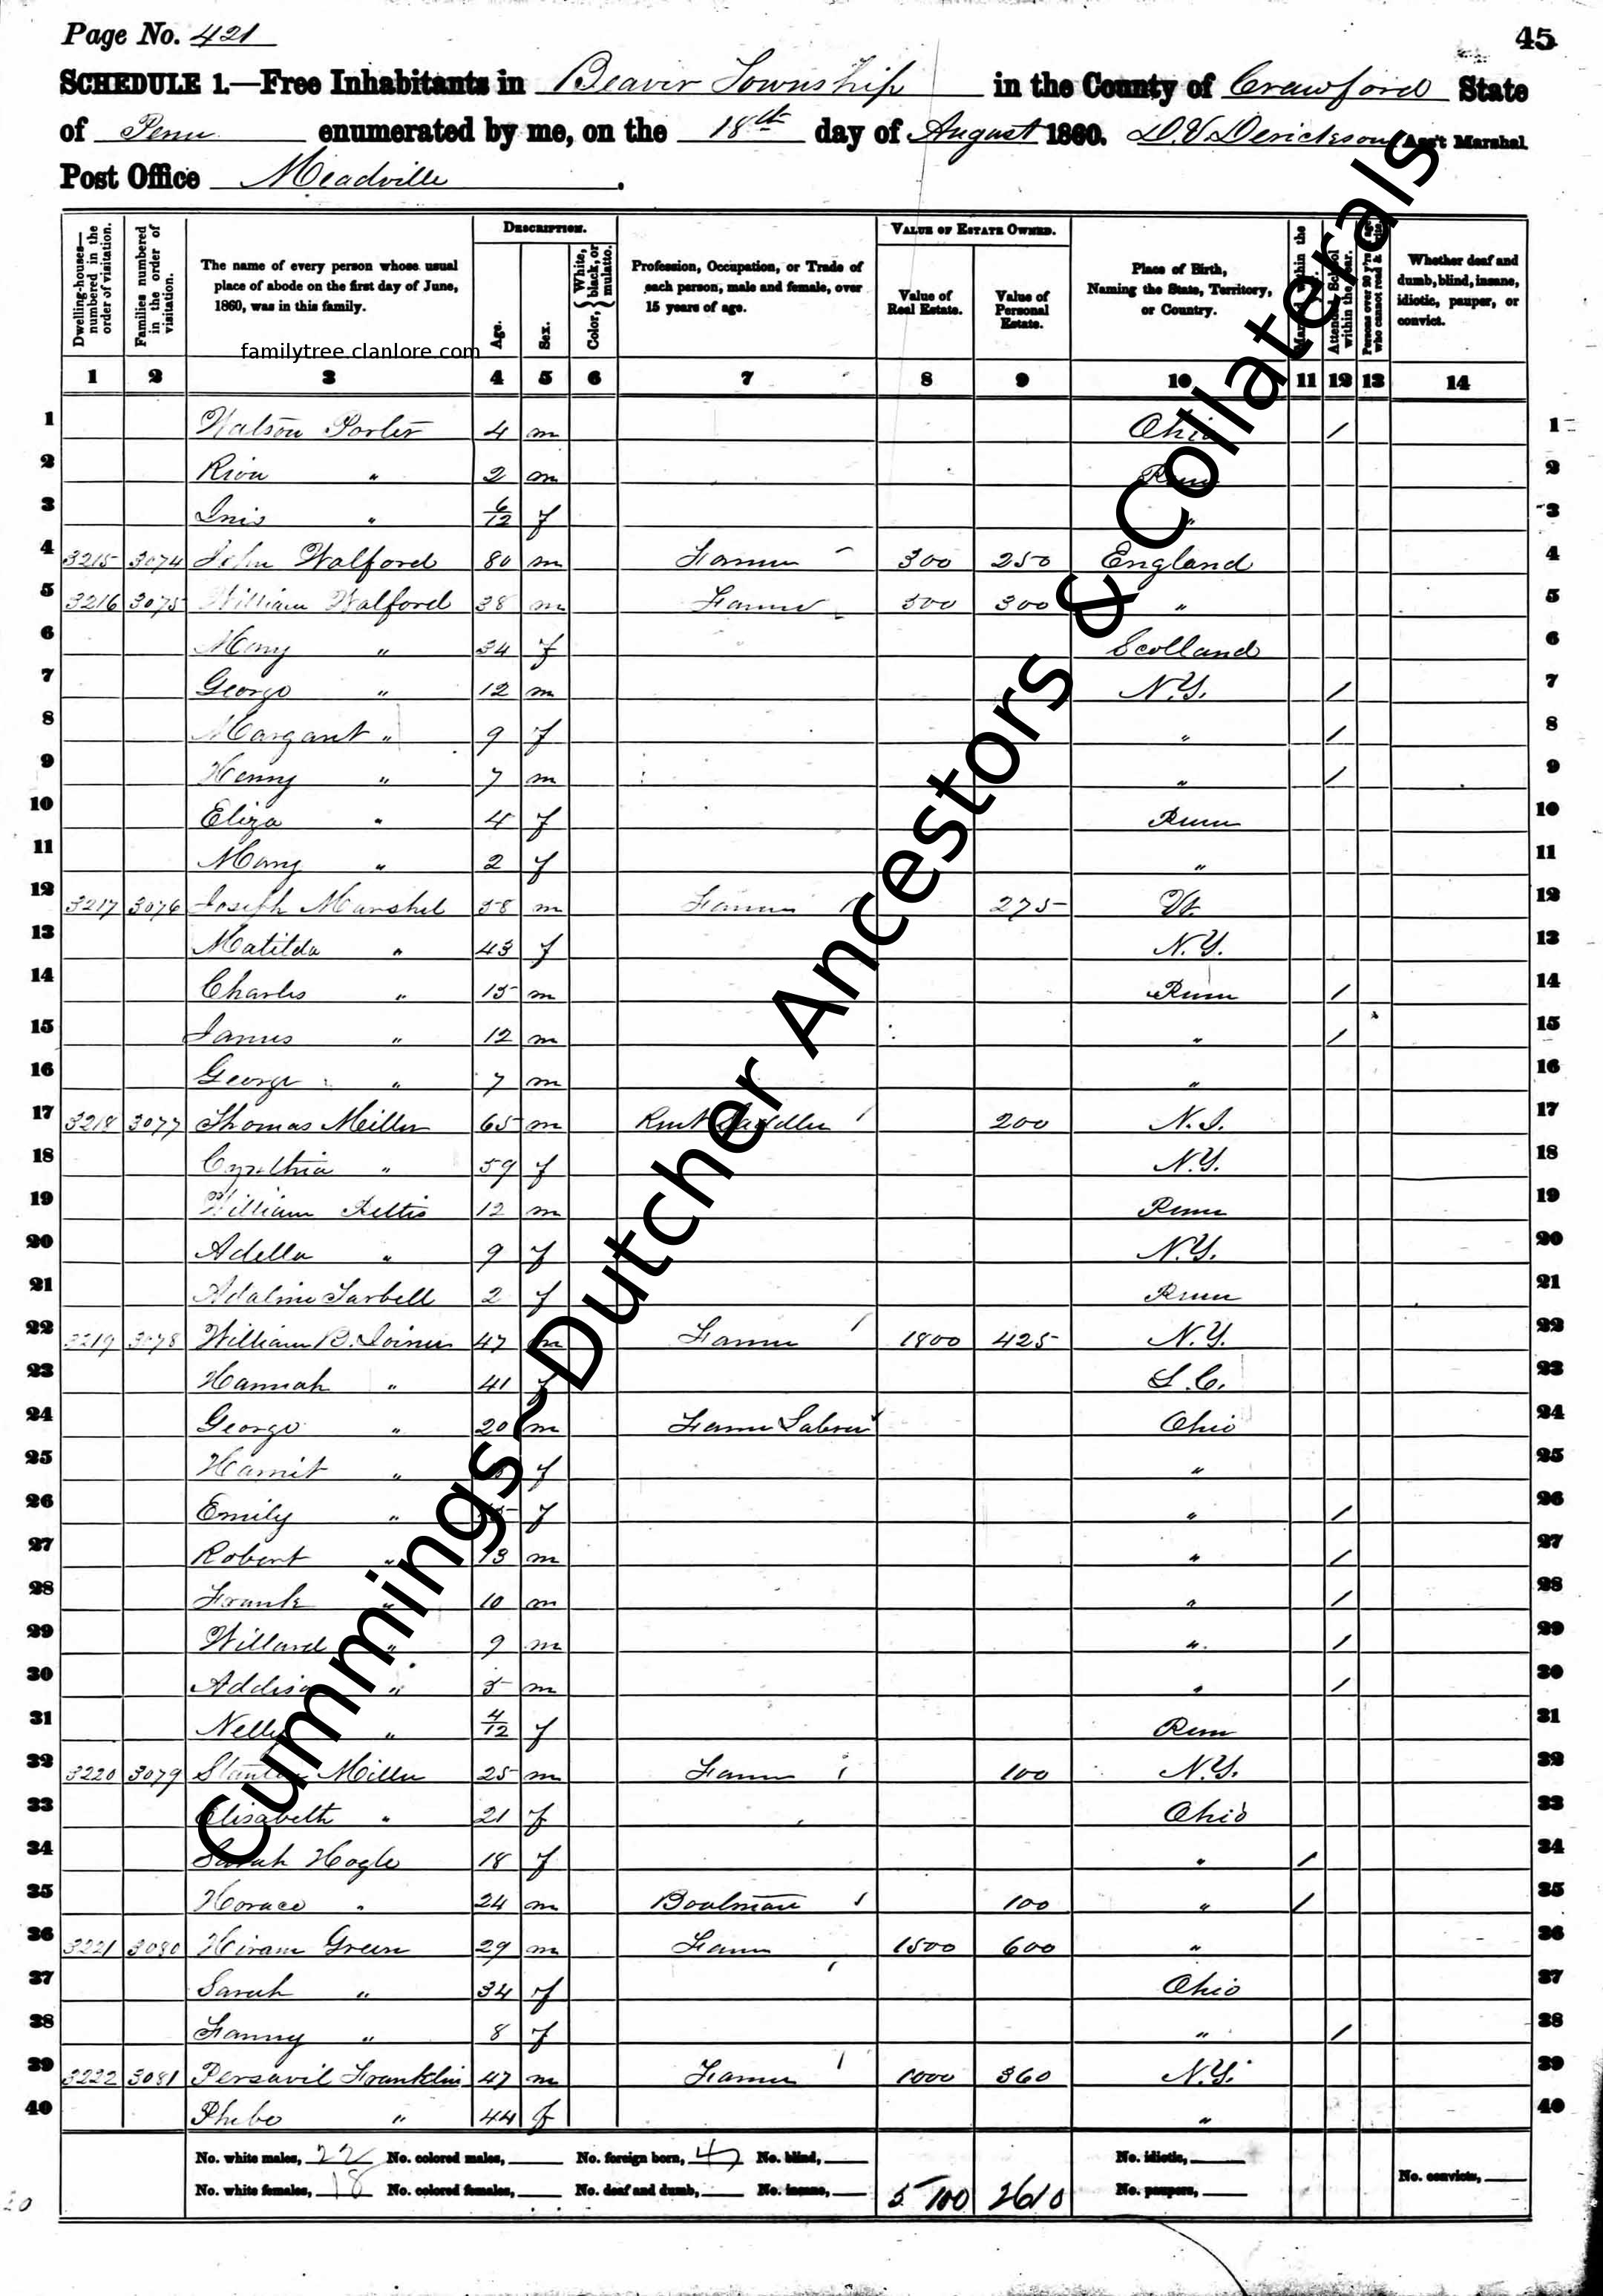 Page No. 421
45
SCHEDULE 1.—Free Inhabitants in Beaver Township in the County of Crawford State
of Penn enumerated by me, on the 18th day of August 1860. D. V. Derickson Ass't Marshal.
Post Office Meadville.
Dwelling-houses—numbered in the order of visitation.
Families numbered in the order of visitation.
The name of every person whose usual place of abode on the first day of June, 1860, was in this family.
DESCRIPTION.
Age.
Sex.
Color, { White, black, or mulatto.
Profession, Occupation, or Trade of each person, male and female, over 15 years of age.
VALUE OF ESTATE OWNED.
Value of Real Estate.
Value of Personal Estate.
Place of Birth, Naming the State, Territory, or Country.
within the
Attended School within the year.
Persons over 20 y'rs of age who cannot read &
Whether deaf and dumb, blind, insane, idiotic, pauper, or convict.
familytree.clanlore.com
1 2 3 4 5 6 7 8 9 10 11 12 13 14
1 Watson Porter 4 m Ohio / 1
2 " 2 m Penn 2
3 " 6/12 f " 3
4 3215 3074 John Walford 80 m Farmer 300 250 England 4
5 3216 3075 William Walford 38 m Farmer 300 " 5
6 Mary " 34 f Scotland 6
7 George " 12 m N.Y. / 7
8 Margaret " 9 f " / 8
9 Henry " 7 m " / 9
10 Eliza " 4 f Penn 10
11 Mary " 2 f " 11
12 3217 3076 Joseph Marshel 58 m Farmer 275 Vt. 12
13 Matilda " 43 f N.Y. 13
14 Charles " 15 m Penn / 14
15 James " 12 m " / 15
16 George " 7 m " 16
17 3218 3077 Thomas Miller 65 m 200 N.J. 17
18 Cynthia " 59 f N.Y. 18
19 William 12 m Penn 19
20 Adella " 9 f N.Y. 20
21 Adaline Tarbell 2 f Penn 21
22 3219 3078 William B. Joiner 47 m Farmer 1800 425 N.Y. 22
23 Hannah " 41 f S.C. 23
24 George " 20 m Farm Laborer Ohio 24
25 Harriet " f " 25
26 Emily " 15 f " / 26
27 Robert " 13 m " / 27
28 Frank " 10 m " / 28
29 Willard " 9 m " / 29
30 Addison " 5 m " / 30
31 Nelly " 4/12 f Penn 31
32 3220 3079 Miller 25 m Farmer 100 N.Y. 32
33 Elisabeth " 21 f Ohio 33
34 Sarah Hogle 18 f " / 34
35 Horace " 24 m Boatman 100 " / 35
36 3221 3080 Hiram Green 29 m Farmer 1500 600 " 36
37 Sarah " 34 f Ohio 37
38 Fanny " 8 f " / 38
39 3222 3081 Persavil Franklin 47 m Farmer 1000 360 N.Y. 39
40 Phebe " 44 f " 40
No. white males, 22 No. colored males, No. foreign born, No. blind, No. idiotic,
No. white females, 18 No. colored females, No. deaf and dumb, No. insane, 5100 2610 No. paupers, No. convicts,
Cummings~Dutcher Ancestors & Collaterals